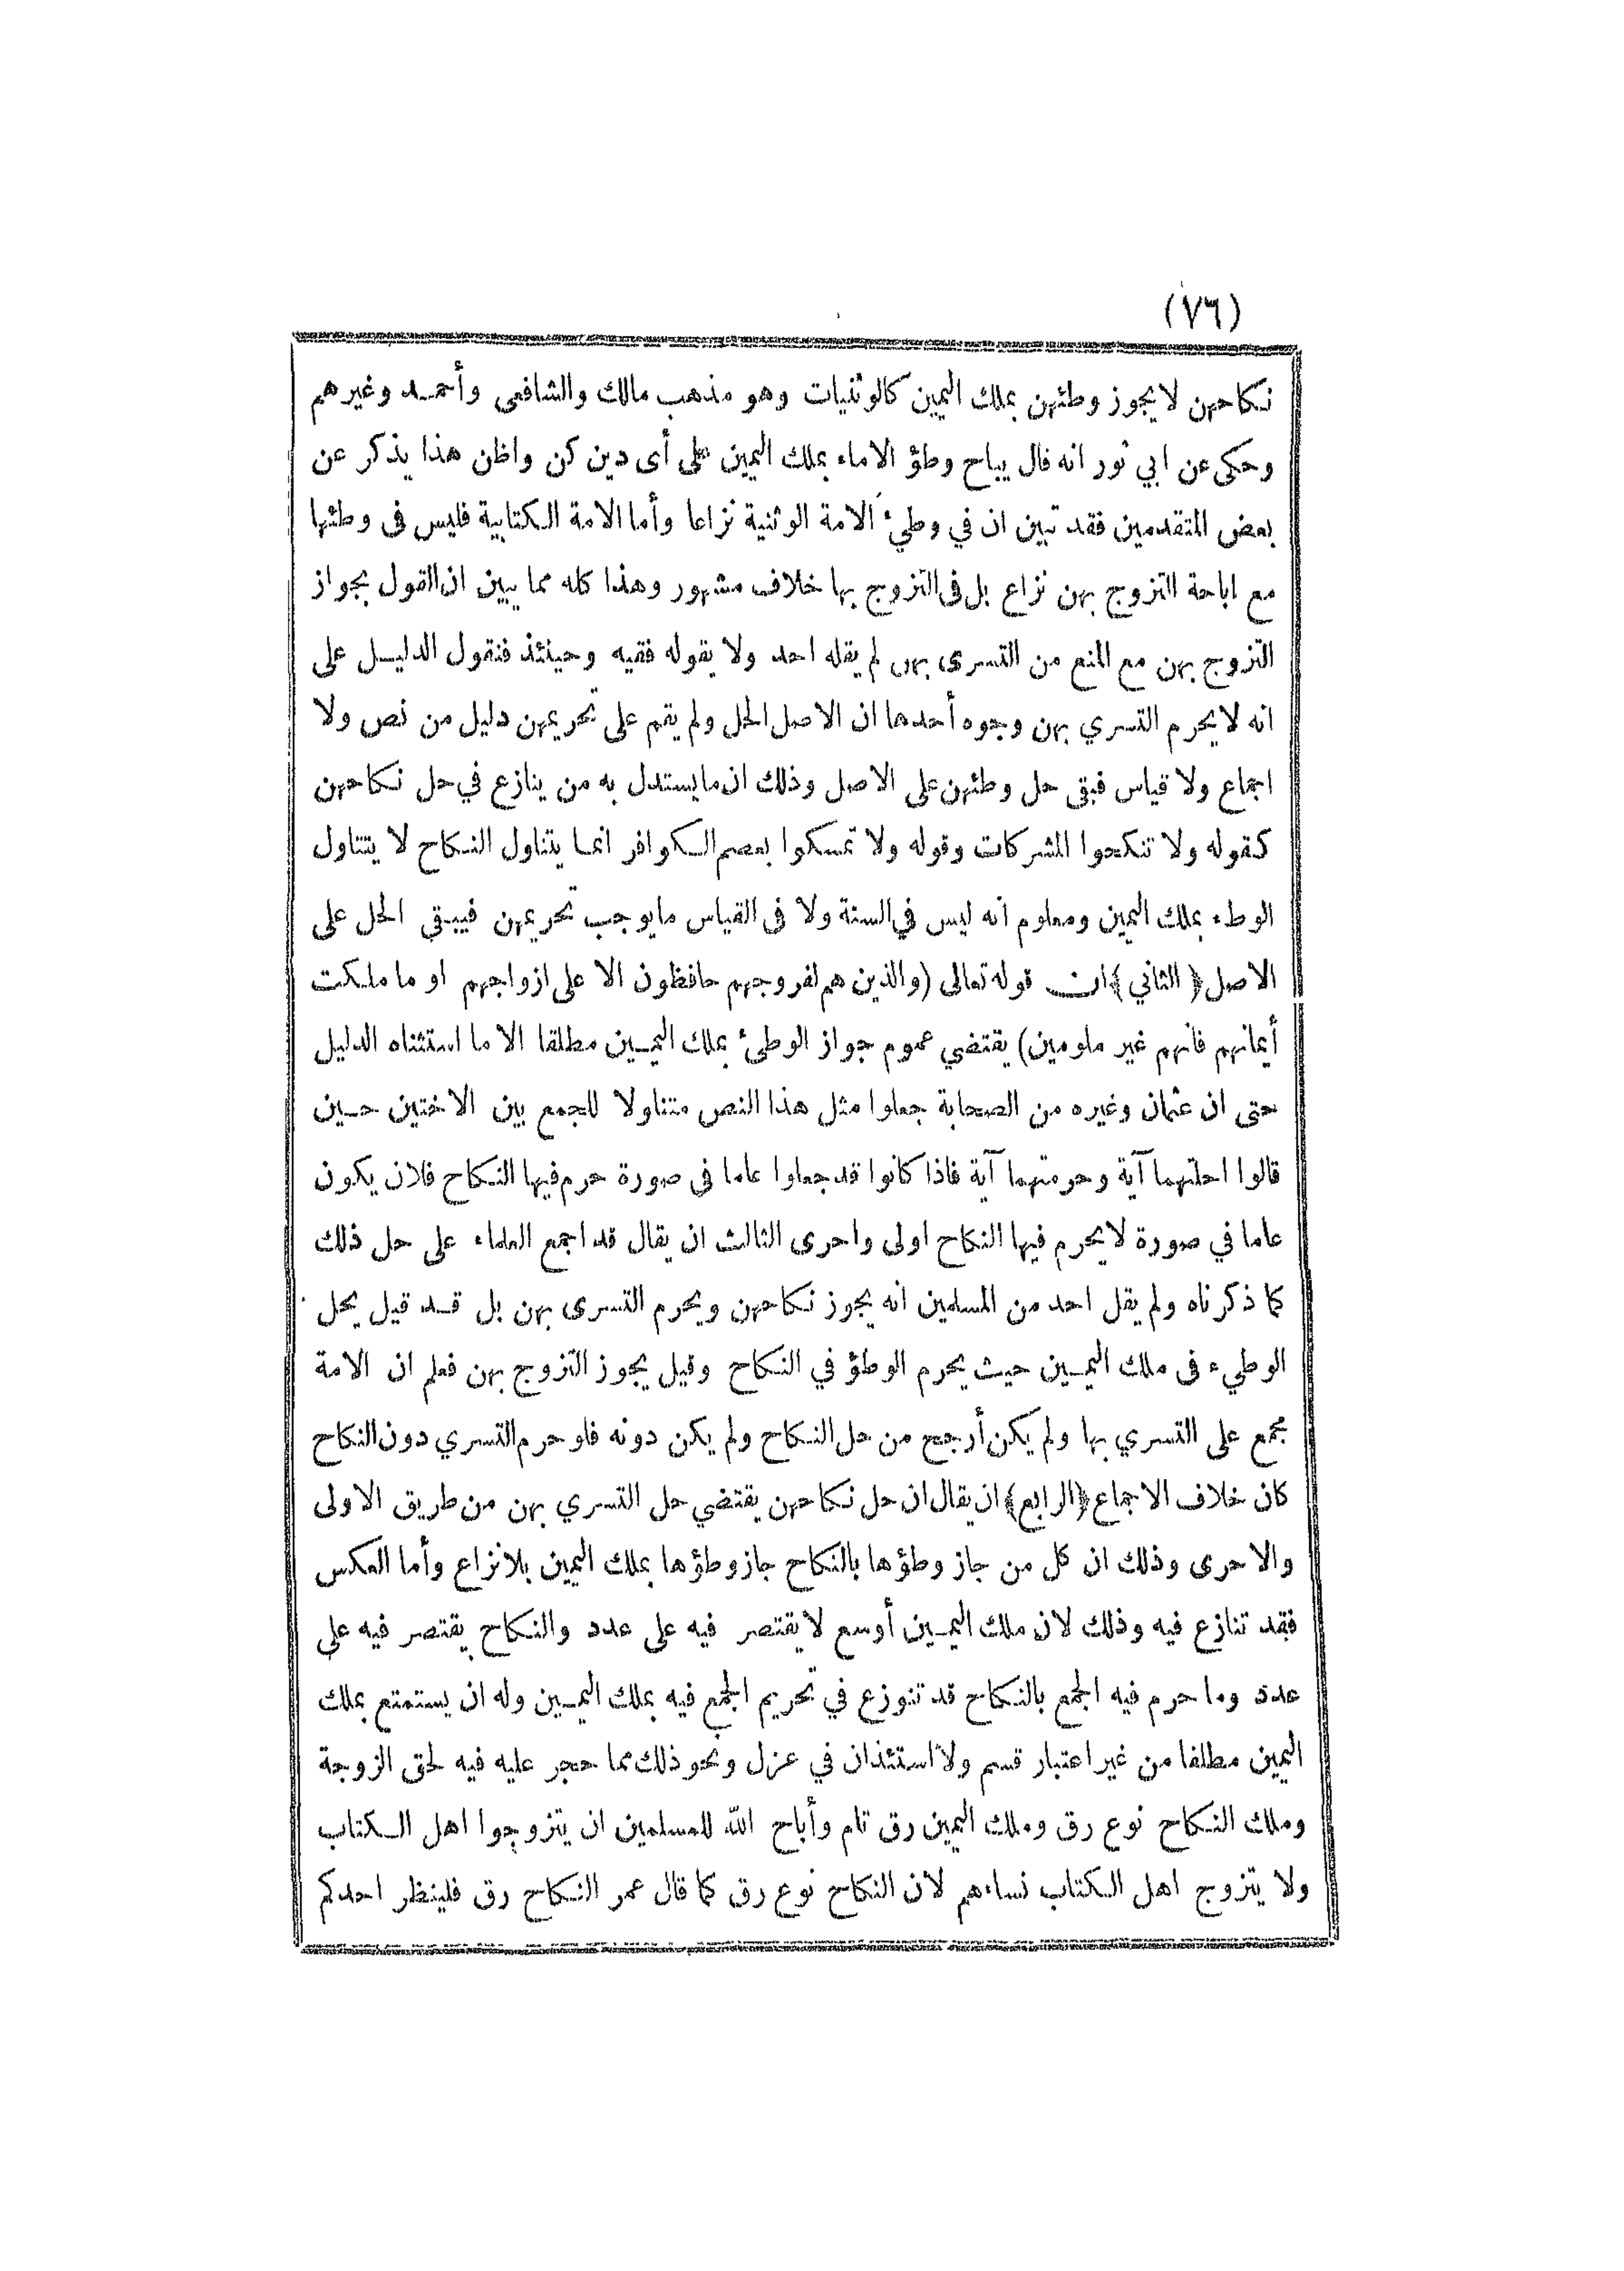 (٧٦)
نكاحهن لا يجوز وطئهن بملك اليمين كالوثنيات وهو مذهب مالك والشافعى وأحمد وغيرهم
وحكى عن ابي ثور انه قال يباح وطؤ الاماء بملك اليمين على أى دين كن واظن هذا يذكر عن
بعض المتقدمين فقد تبين ان في وطيء الامة الوثنية نزاعا وأما الامة الكتابية فليس فى وطئها
مع اباحة التزوج بهن نزاع بل فى التزوج بها خلاف مشهور وهذا كله مما يبين ان القول بجواز
التزوج بهن مع المنع من التسرى بهن لم يقله احد ولا يقوله فقيه وحينئذ فنقول الدليل على
انه لا يحرم التسري بهن وجوه أحدها ان الاصل الحل ولم يقم على تحريمهن دليل من نص ولا
اجماع ولا قياس فبقى حل وطئهن على الاصل وذلك ان ما يستدل به من ينازع في حل نكاحهن
كقوله ولا تنكحوا المشركات وقوله ولا تمسكوا بعصم الكوافر انما يتناول النكاح لا يتناول
الوطء بملك اليمين ومعلوم انه ليس في السنة ولا فى القياس ما يوجب تحريمهن فيبقي الحل على
الاصل ﴿الثاني﴾ ان قوله تعالى (والذين هم لفروجهم حافظون الا على ازواجهم او ما ملكت
أيمانهم فانهم غير ملومين) يقتضي عموم جواز الوطئ بملك اليمين مطلقا الا ما استثناه الدليل
حتى ان عثمان وغيره من الصحابة جعلوا مثل هذا النص متناولا للجمع بين الاختين حين
قالوا احلتهما آية وحرمتهما آية فاذا كانوا قد جعلوا عاما فى صورة حرم فيها النكاح فلان يكون
عاما في صورة لا يحرم فيها النكاح اولى واحرى الثالث ان يقال قد اجمع العلماء على حل ذلك
كما ذكرناه ولم يقل احد من المسلمين انه يجوز نكاحهن ويحرم التسرى بهن بل قد قيل يحل
الوطيء فى ملك اليمين حيث يحرم الوطؤ في النكاح وقيل يجوز التزوج بهن فعلم ان الامة
مجمع على التسري بها ولم يكن أرجح من حل النكاح ولم يكن دونه فلو حرم التسري دون النكاح
كان خلاف الاجماع ﴿الرابع﴾ ان يقال ان حل نكاحهن يقتضي حل التسري بهن من طريق الاولى
والاحرى وذلك ان كل من جاز وطؤها بالنكاح جاز وطؤها بملك اليمين بلا نزاع وأما العكس
فقد تنازع فيه وذلك لان ملك اليمين أوسع لا يقتصر فيه على عدد والنكاح يقتصر فيه على
عدد وما حرم فيه الجمع بالنكاح قد تنوزع في تحريم الجمع فيه بملك اليمين وله ان يستمتع بملك
اليمين مطلقا من غير اعتبار قسم ولا استئذان في عزل ونحو ذلك مما حجر عليه فيه لحق الزوجة
وملك النكاح نوع رق وملك اليمين رق تام وأباح الله للمسلمين ان يتزوجوا اهل الكتاب
ولا يتزوج اهل الكتاب نساءهم لان النكاح نوع رق كما قال عمر النكاح رق فلينظر احدكم